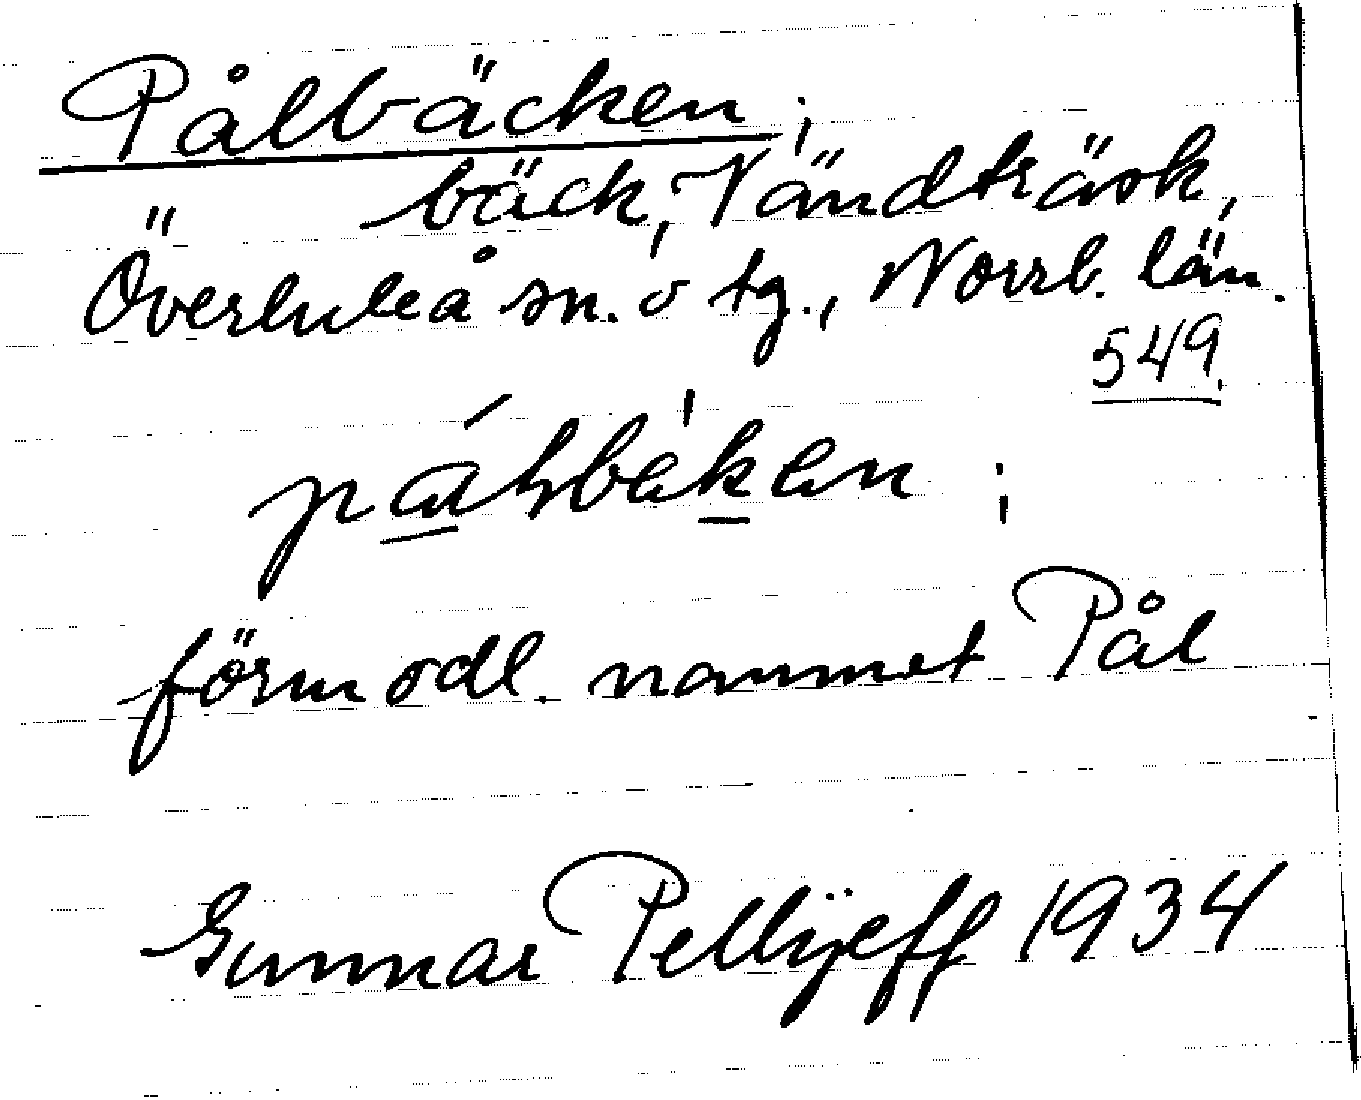 Pålbäcken;
bäck, Vändträsk,
Överluleå sn. o tg., Norrb. län.
549.
förmodl. namnet Pål
Gunnar Pellijeff 1934